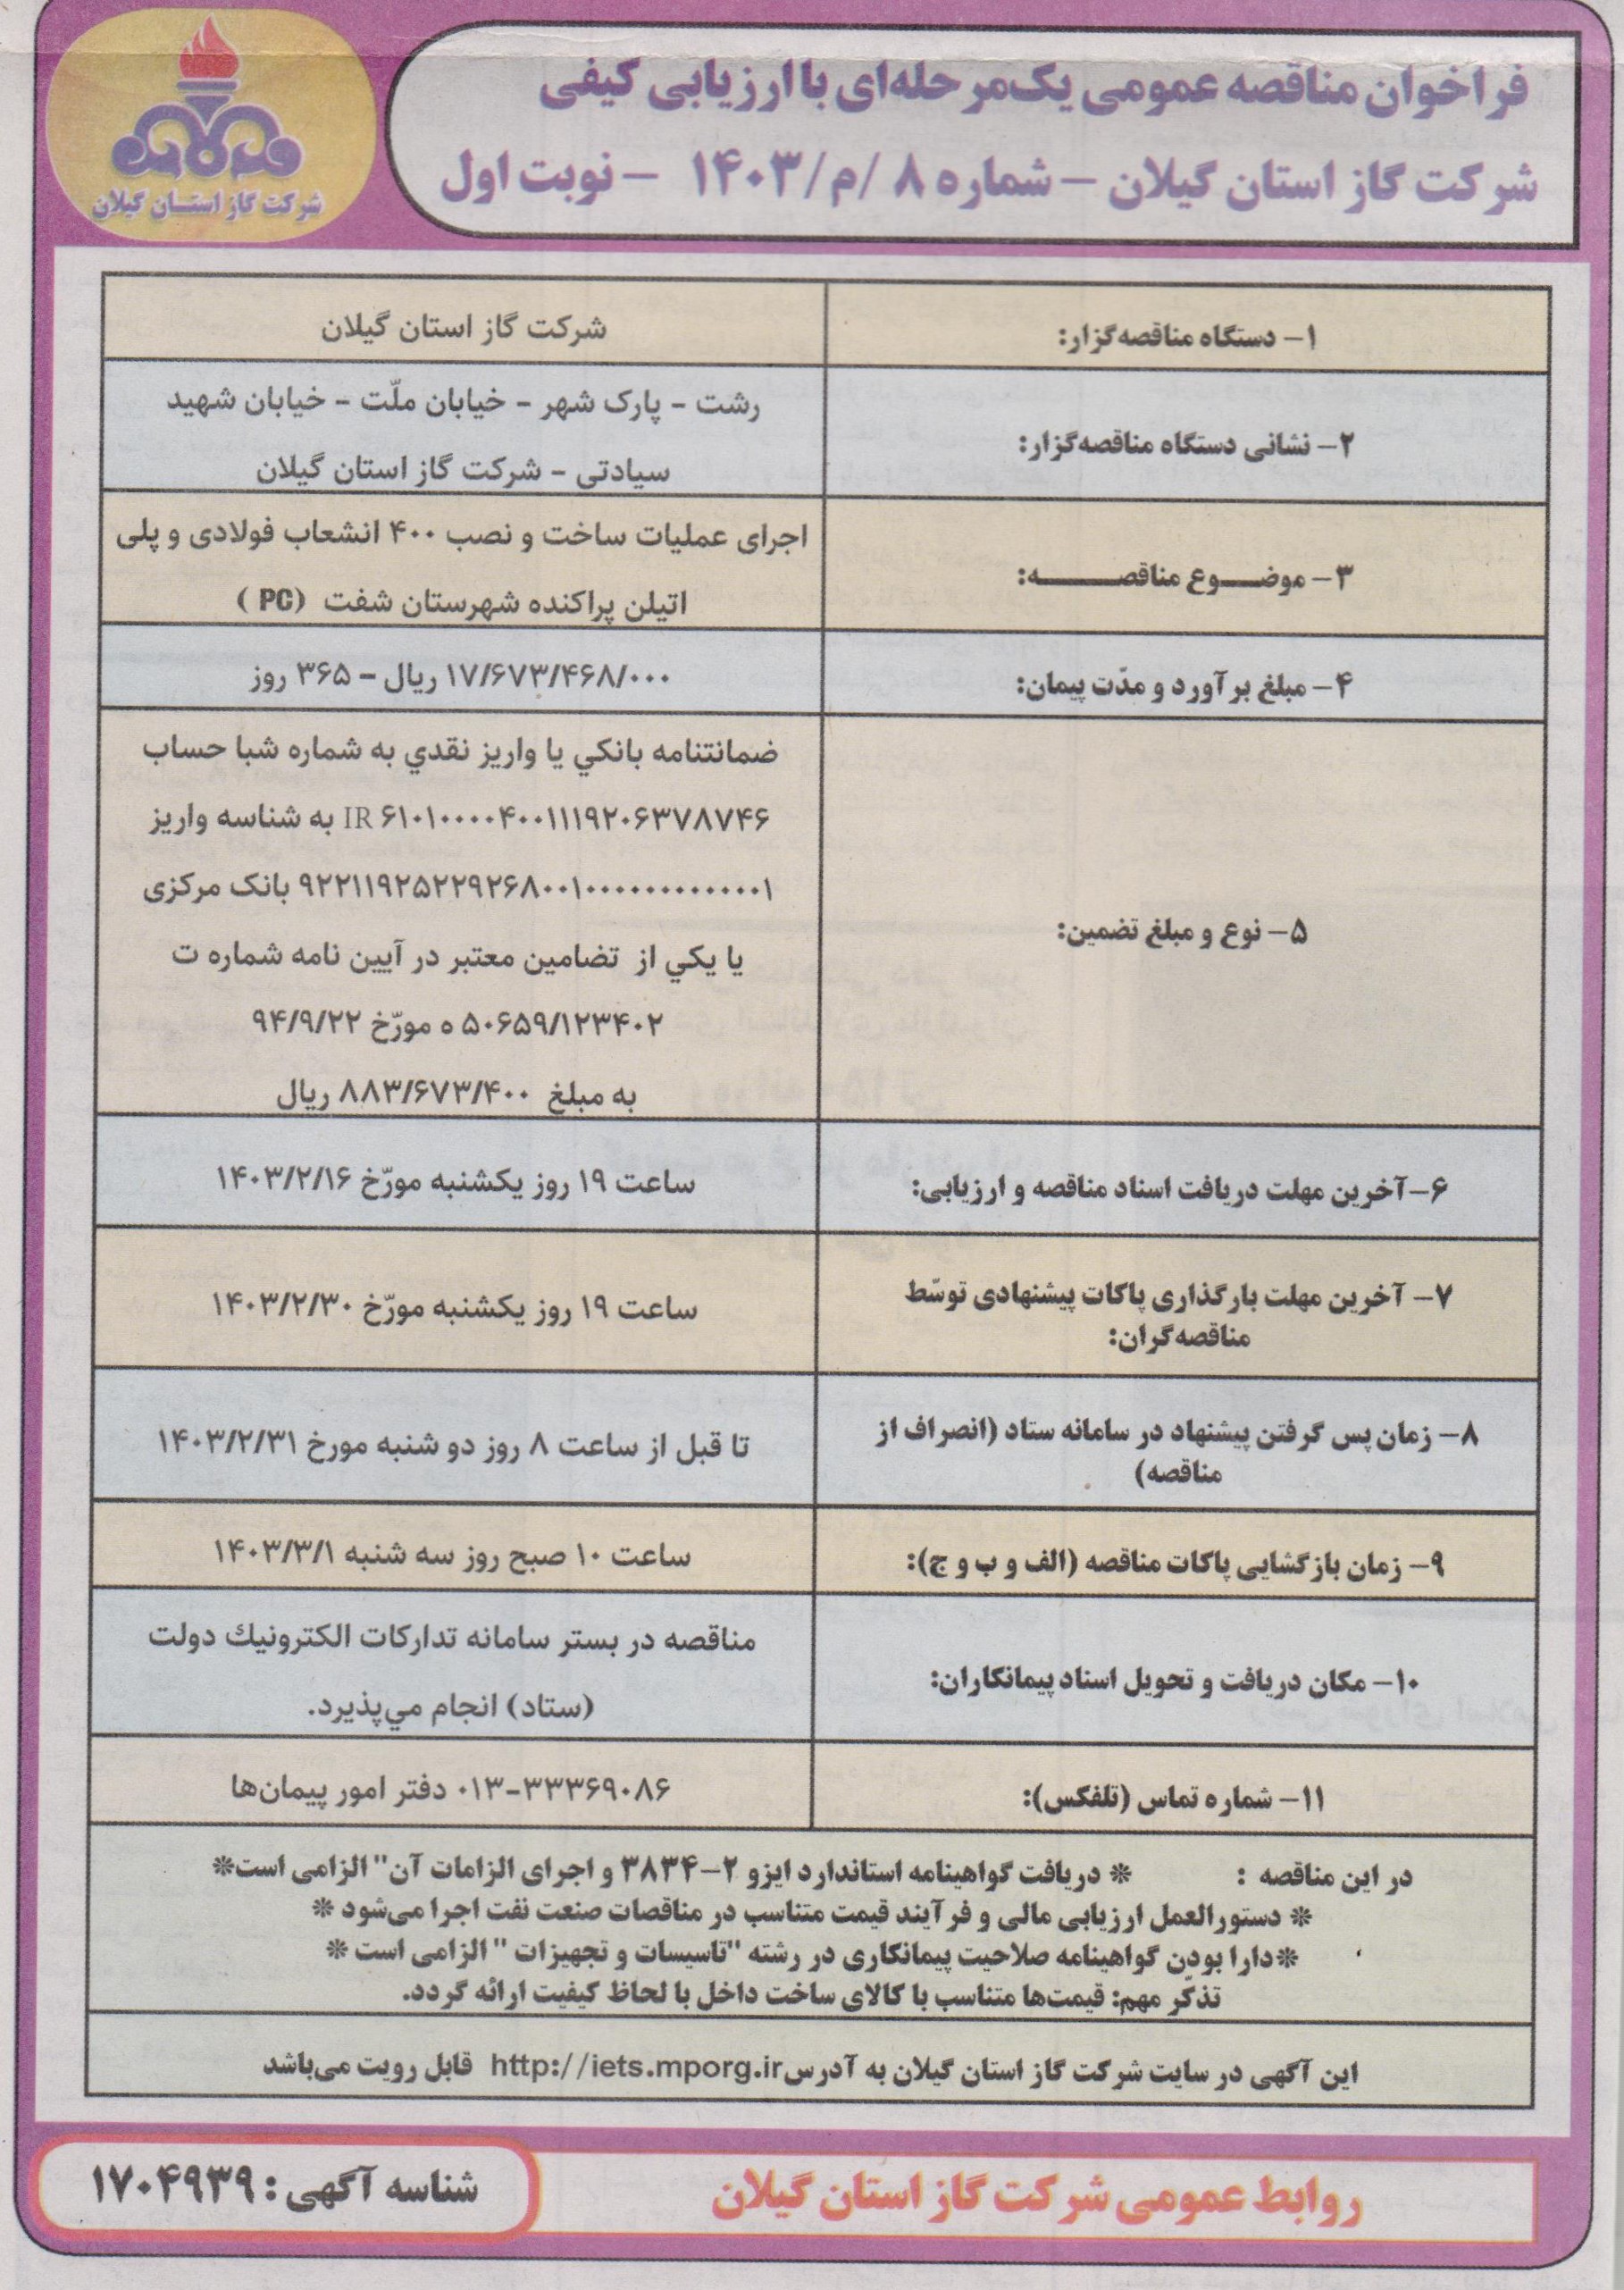 فراخوان مناقصه عمومی یک‌مرحله‌ای با ارزیابی کیفی
شرکت گاز استان گیلان – شماره ۸ /م/۱۴۰۳ – نوبت اول
شرکت گاز استان گیلان
۱– دستگاه مناقصه‌گزار:
شرکت گاز استان گیلان
۲– نشانی دستگاه مناقصه‌گزار:
رشت – پارک شهر – خیابان ملّت – خیابان شهید
سیادتی – شرکت گاز استان گیلان
۳– موضـــوع مناقصـــــــه:
اجرای عملیات ساخت و نصب ۴۰۰ انشعاب فولادی و پلی
اتیلن پراکنده شهرستان شفت (PC )
۴– مبلغ برآورد و مدّت پیمان:
۱۷/۶۷۳/۴۶۸/۰۰۰ ریال – ۳۶۵ روز
۵– نوع و مبلغ تضمین:
ضمانتنامه بانكي يا واريز نقدي به شماره شبا حساب
IR ۶۱۰۱۰۰۰۰۴۰۰۱۱۱۹۲۰۶۳۷۸۷۴۶ به شناسه واریز
۹۲۲۱۱۹۲۵۲۲۹۲۶۸۰۰۱۰۰۰۰۰۰۰۰۰۰۰۰۰۱ بانک مرکزی
یا يكي از تضامین معتبر در آیین نامه شماره ت
۵۰۶۵۹/۱۲۳۴۰۲ ه مورّخ ۹۴/۹/۲۲
به مبلغ ۸۸۳/۶۷۳/۴۰۰ ریال
۶–آخرین مهلت دریافت اسناد مناقصه و ارزیابی:
ساعت ۱۹ روز یکشنبه مورّخ ۱۴۰۳/۲/۱۶
۷– آخرین مهلت بارگذاری پاکات پیشنهادی توسّط
مناقصه‌گران:
ساعت ۱۹ روز یکشنبه مورّخ ۱۴۰۳/۲/۳۰
۸– زمان پس گرفتن پیشنهاد در سامانه ستاد (انصراف از
مناقصه)
تا قبل از ساعت ۸ روز دو شنبه مورخ ۱۴۰۳/۲/۳۱
۹– زمان بازگشایی پاکات مناقصه (الف و ب و ج):
ساعت ۱۰ صبح روز سه شنبه ۱۴۰۳/۳/۱
۱۰– مکان دریافت و تحویل اسناد پیمانکاران:
مناقصه در بستر سامانه تداركات الكترونيك دولت
(ستاد) انجام مي‌پذيرد.
۱۱– شماره تماس (تلفکس):
۰۱۳-۳۳۳۶۹۰۸۶ دفتر امور پیمان‌ها
در این مناقصه : * دریافت گواهینامه استاندارد ایزو ۲–۳۸۳۴ و اجرای الزامات آن" الزامی است*
* دستورالعمل ارزیابی مالی و فرآیند قیمت متناسب در مناقصات صنعت نفت اجرا می‌شود *
*دارا بودن گواهینامه صلاحیت پیمانکاری در رشته "تاسیسات و تجهیزات " الزامی است *
تذکّر مهم: قیمت‌ها متناسب با کالای ساخت داخل با لحاظ کیفیت ارائه گردد.
این آگهی در سایت شرکت گاز استان گیلان به آدرسhttp://iets.mporg.ir قابل رویت می‌باشد
روابط عمومی شرکت گاز استان گیلان
شناسه آگهی : ۱۷۰۴۹۳۹